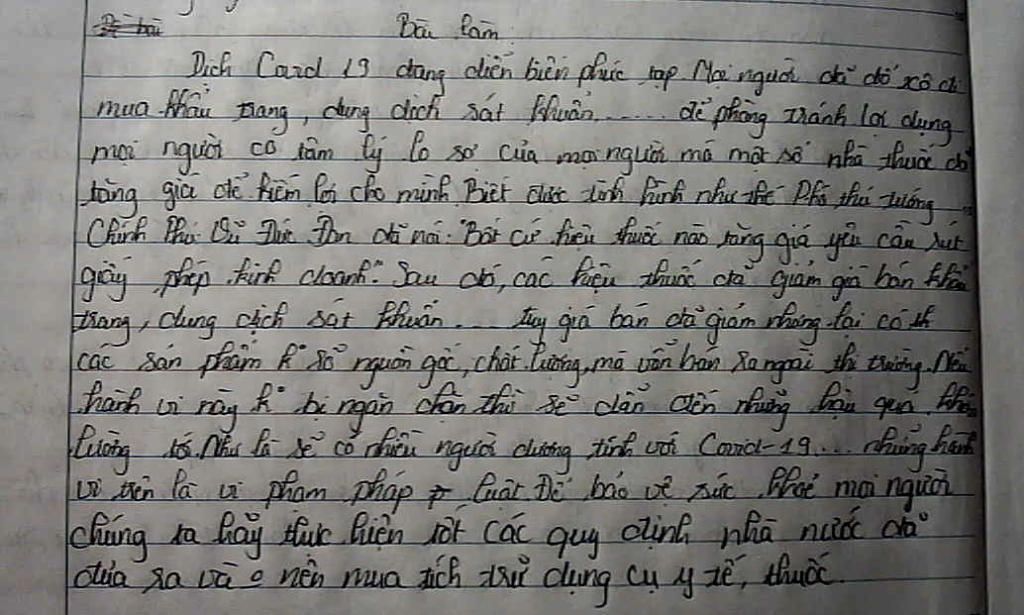 Đề bài Bài làm:
Dịch Covid 19 đang diễn biến phức tạp Mọi người đã đổ xô đi
mua khẩu trang, dung dịch sát khuẩn...... để phòng tránh lợi dụng
mọi người có tâm lý lo sợ của mọi người mà một số nhà thuốc đã
tăng giá để kiếm lời cho mình Biết được tình hình như thế Phó thủ tướng
Chính Phủ Vũ Đức Đam đã nói: "Bất cứ hiệu thuốc nào tăng giá yêu cầu rút
giấy phép kinh doanh". Sau đó, các hiệu thuốc đã giảm giá bán khẩu
trang, dung dịch sát khuẩn... tuy giá bán đã giảm nhưng lại có
các sản phẩm k° rõ nguồn gốc, chất lượng, mà vẫn bán ra ngoài thị trường. Nếu
hành vi này k° bị ngăn chặn thì sẽ dẫn đến những hậu quả khôn
lường tới. Như là sẽ có nhiều người dương tính với Covid-19... những hành
vi trên là vi phạm pháp luật. Để bảo vệ sức khoẻ mọi người
chúng ta hãy thực hiện tốt các quy định nhà nước đã
đưa ra và o nên mua tích trữ dụng cụ y tế, thuốc.